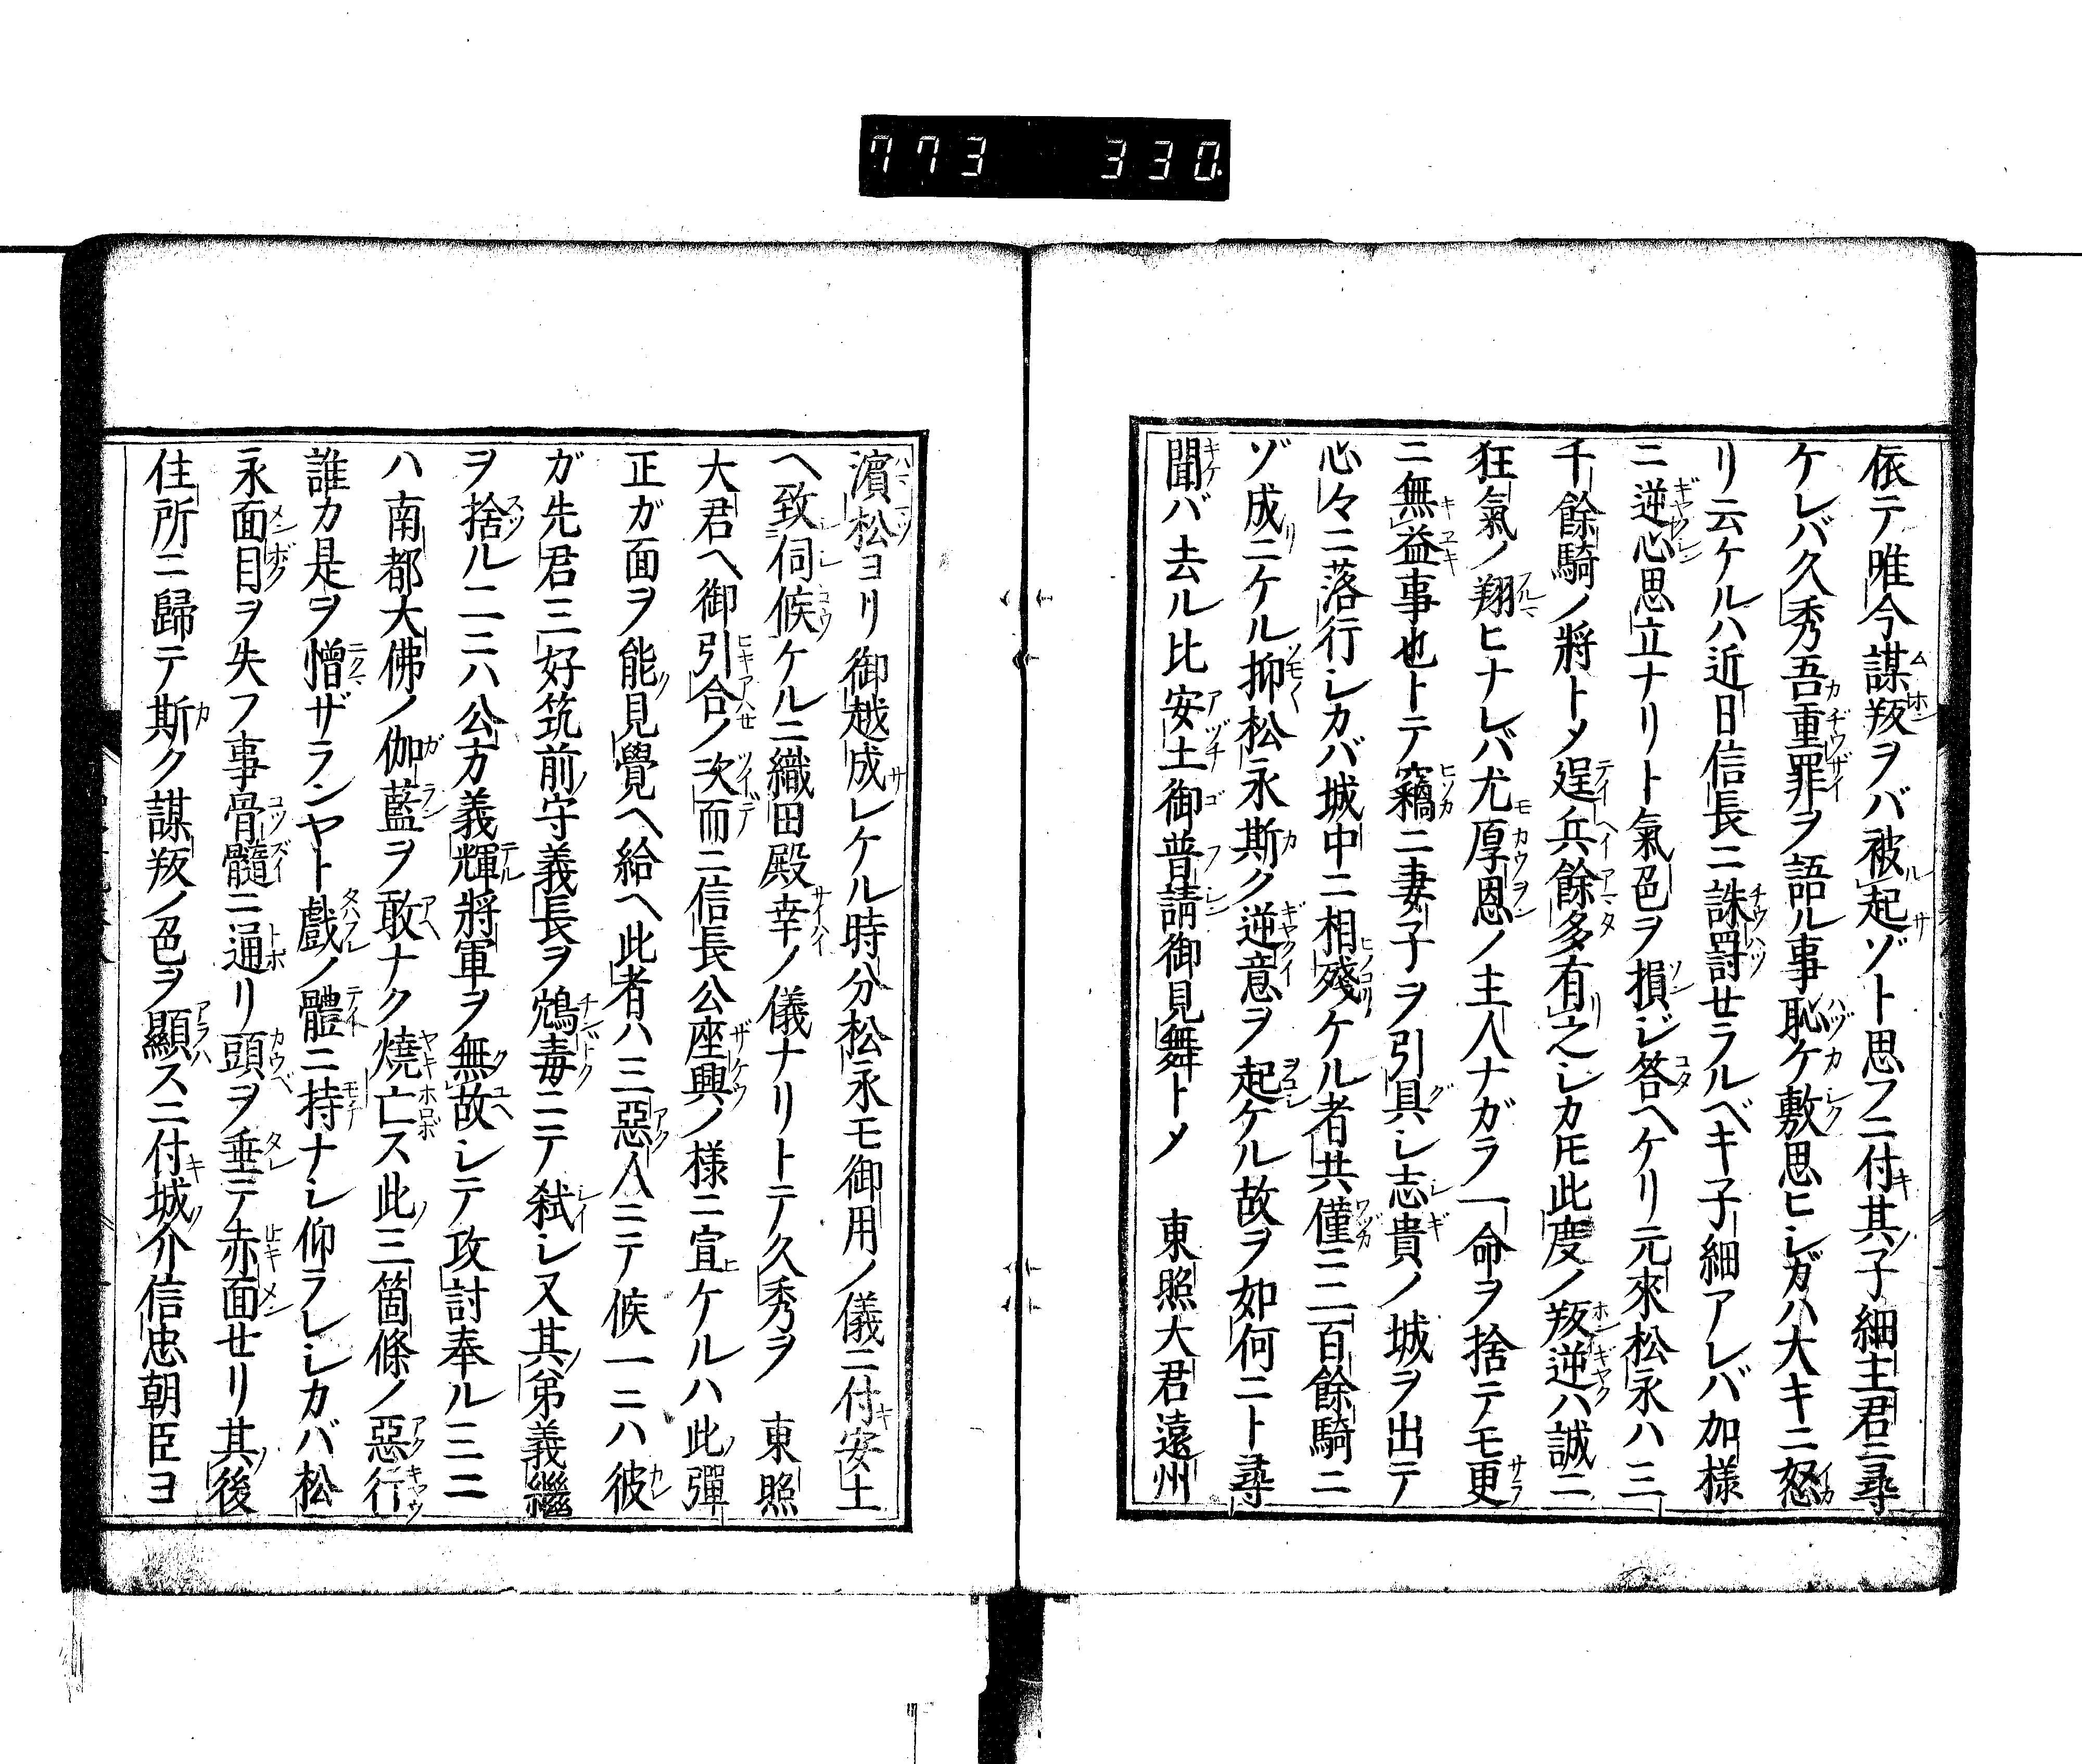 773 330
依テ唯今謀叛ヲバ被起ゾト思フニ付其子細主君ニ尋
ケレバ久秀吾重罪ヲ語ル事恥ケ敷思ヒシガハ大キニ怒
リ云ケルハ近日信長ニ誅罸セラルベキ子細アレバ加様
ニ逆心思立ナリト氣色ヲ損ジ答ヘケリ元來松永ハ三
千餘騎ノ將トメ逞兵餘多有之シカ𪜈此度ノ叛逆ハ誠ニ
狂氣ノ翔ヒナレバ尤厚恩ノ主人ナガラ一命ヲ捨テモ更
ニ無益事也トテ竊ニ妻子ヲ引具シ志貴ノ城ヲ出テ
心々ニ落行シカバ城中ニ相殘ケル者共僅ニ三百餘騎ニ
ゾ成ニケル抑松永斯ク逆意ヲ起ケル故ヲ如何ニト尋
聞バ去ル比安土御普請御見舞トメ 東照大君遠州
濵松ヨリ御越成レケル時分松永モ御用ノ儀ニ付安土
ヘ致伺候ケルニ織田殿幸ノ儀ナリトテ久秀ヲ 東照
大君ヘ御引合ノ次而ニ信長公座興ノ様ニ宣ケルハ此彈
正ガ面ヲ能見覺ヘ給ヘ此者ハ三惡人ニテ候一ニハ彼
ガ先君三好筑前守義長ヲ鴆毒ニテ弑シ又其弟義繼
ヲ捨ル二ニハ公方義輝將軍ヲ無故シテ攻討奉ル三ニ
ハ南都大佛ノ伽藍ヲ敢ナク燒亡ス此三箇條ノ惡行
誰カ是ヲ憎ザランヤト戲ノ體ニ持ナシ仰ラレシカバ松
永面目ヲ失フ事骨髓ニ通リ頭ヲ垂テ赤面セリ其後
住所ニ歸テ斯ク謀叛ノ色ヲ顯スニ付城介信忠朝臣ヨ